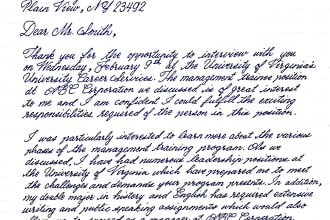 Plain View, NY 23492
Dear Mr. Smith,
Thank you for the opportunity to interview with you
on Wednesday, February 9th at the University of Virginia's
University Career Services. The management trainee position
at ABC Corporation we discussed is of great interest
to me and I am confident I could fulfill the exciting
responsibilities required of the person in this position.
I was particularly interested to learn more about the various
phases of the management training program. As we
discussed, I have had numerous leadership positions at
the University of Virginia which have prepared me to meet
the challenges and demands your program presents. In addition,
my double major in history and English has required extensive
writing and public speaking assignments which would also